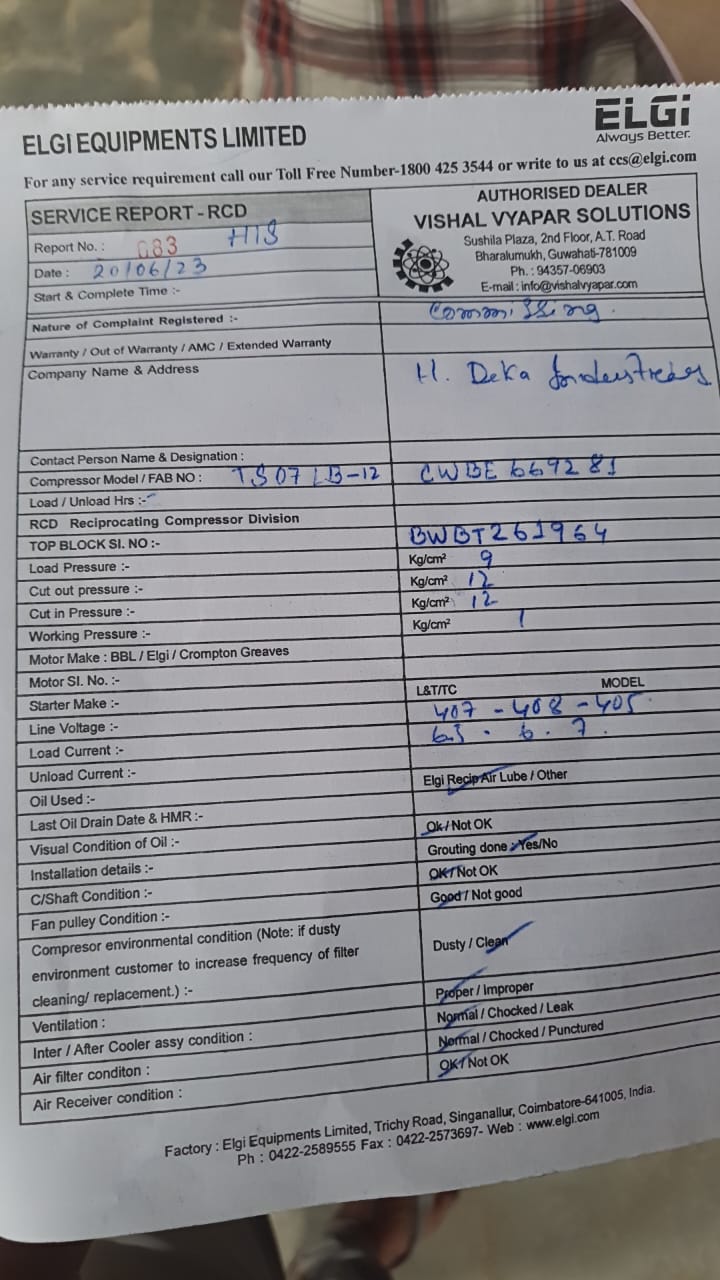 ELGI EQUIPMENTS LIMITED
ELGi
Always Better.
For any service requirement call our Toll Free Number-1800 425 3544 or write to us at ccs@elgi.com
SERVICE REPORT - RCD
Report No. : 083 HIS
Date : 20/06/23
Start & Complete Time :-
AUTHORISED DEALER
VISHAL VYAPAR SOLUTIONS
Sushila Plaza, 2nd Floor, A.T. Road
Bharalumukh, Guwahati-781009
Ph. : 94357-06903
E-mail : info@vishalvyapar.com
Nature of Complaint Registered :- Commissing.
Warranty / Out of Warranty / AMC / Extended Warranty
Company Name & Address H. Deka
Contact Person Name & Designation :
Compressor Model / FAB NO : TS07LB-12 CWBE669281
Load / Unload Hrs :-
RCD Reciprocating Compressor Division
TOP BLOCK SI. NO :- BWBT261964
Load Pressure :- Kg/cm² 9
Cut out pressure :- Kg/cm² 12
Cut in Pressure :- Kg/cm² 12
Working Pressure :- Kg/cm²
Motor Make : BBL / Elgi / Crompton Greaves
Motor SI. No. :-
Starter Make :- L&T/TC MODEL
Line Voltage :- 407 - 408 - 405
Load Current :- 6.5 . 6 . 7 .
Unload Current :-
Oil Used :- Elgi Recip Air Lube / Other
Last Oil Drain Date & HMR :-
Visual Condition of Oil :- Ok / Not OK
Installation details :- Grouting done :- Yes/No
C/Shaft Condition :- OK / Not OK
Fan pulley Condition :- Good / Not good
Compresor environmental condition (Note: if dusty
environment customer to increase frequency of filter
cleaning/ replacement.) :- Dusty / Clean
Ventilation : Proper / Improper
Inter / After Cooler assy condition : Normal / Chocked / Leak
Air filter conditon : Normal / Chocked / Punctured
Air Receiver condition : OK / Not OK
Factory : Elgi Equipments Limited, Trichy Road, Singanallur, Coimbatore-641005, India.
Ph : 0422-2589555 Fax : 0422-2573697- Web : www.elgi.com